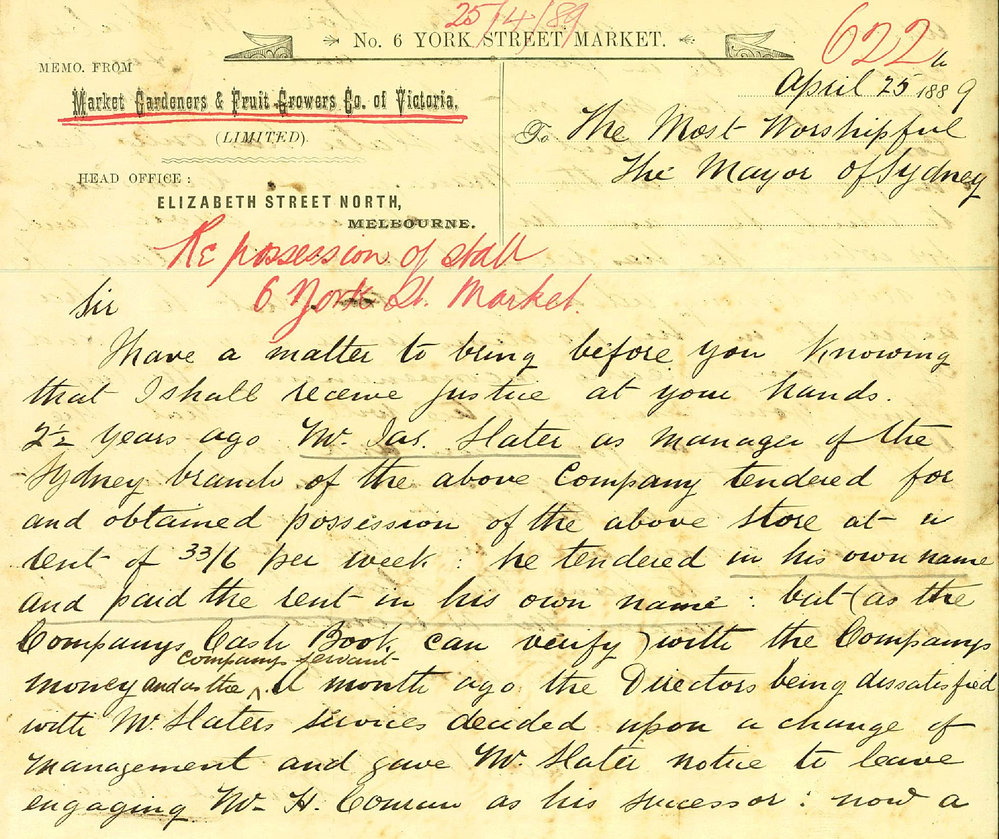 25/4/89
No. 6 YORK STREET MARKET.
622
MEMO. FROM
Market Gardeners & Fruit Growers Co. of Victoria,
(LIMITED).
HEAD OFFICE:
ELIZABETH STREET NORTH,
MELBOURNE.
April 25th 1889
To The Most Worshipful
The Mayor of Sydney
Re possession of stall
6 York St. Market.
Sir
I have a matter to bring before you Knowing
that I shall receive justice at your hands.
2½ years ago Mr. Jas. Slater as manager of the
Sydney branch of the above Company tendered for
and obtained possession of the above store at a
rent of 33/6 per week: he tendered in his own name
and paid the rent in his own name: but (as the
Companys Cash Book can verify) with the Companys
money and as the companys servant. A month ago the Directors being dissatisfied
with Mr. Slaters services decided upon a change of
management and gave Mr. Slater notice to leave
engaging Mr. H. as his successor: now a